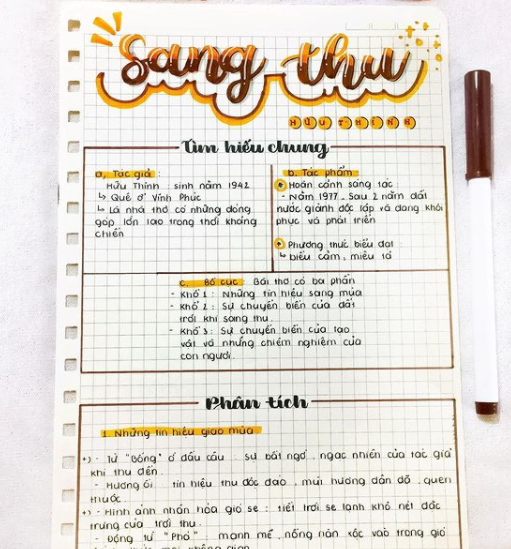 Sang thu
HỮU THỈNH
Tìm hiểu chung
a, Tác giả :
Hữu Thỉnh : sinh năm 1942
↳ Quê ở Vĩnh Phúc
↳ Là nhà thơ có những đóng
góp lớn lao trong thời kháng
chiến
b. Tác phẩm
Hoàn cảnh sáng tác
- Năm 1977. Sau 2 năm đất
nước giành độc lập và đang khôi
phục và phát triển
Phương thức biểu đạt
↳ biểu cảm, miêu tả
c. Bố cục : Bài thơ có ba phần
- Khổ 1 : Những tín hiệu sang mùa
- Khổ 2 : Sự chuyển biến của đất
trời khi sang thu.
- Khổ 3 : Sự chuyển biến của tạo
vật và những chiêm nghiệm của
con người.
Phân tích
1. Những tín hiệu giao mùa
+) - Từ "Bỗng" ở đầu câu : sự bất ngờ, ngạc nhiên của tác giả
khi thu đến.
- Hương ổi : tín hiệu thu độc đáo, mùi hương dân dã, quen
thuộc.
+) - Hình ảnh nhân hóa gió se : tiết trời se lạnh khô nét đặc
trưng của trời thu.
- Động từ "Phả" : mạnh mẽ, nồng nàn xộc vào trong gió